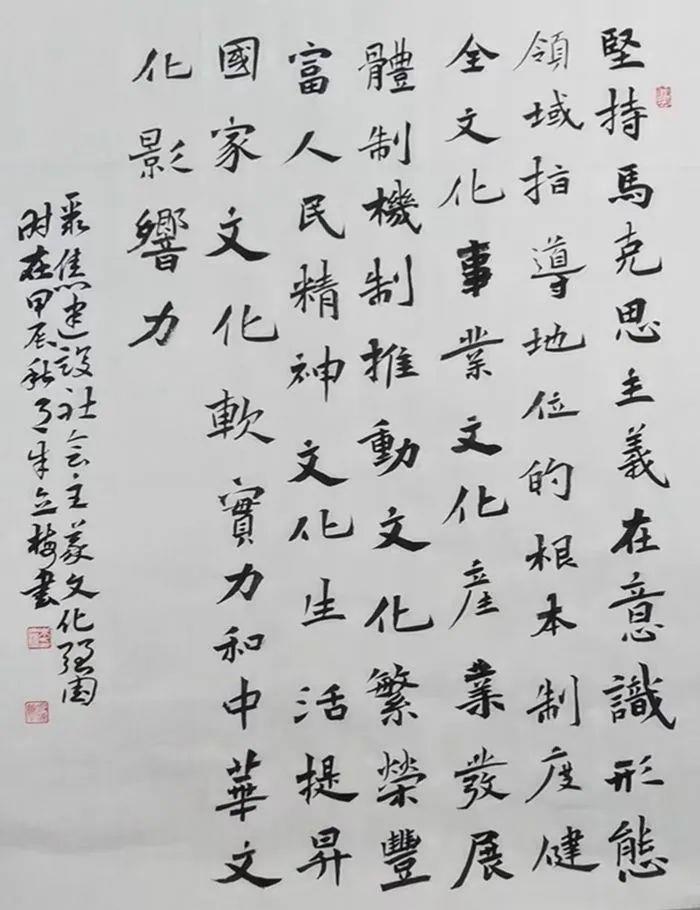 堅持馬克思主義在意識形態
領域指導地位的根本制度健
全文化事業文化産業發展
體制機制推動文化繁榮豐
富人民精神文化生活提昇
國家文化軟實力和中華文
化影響力
聚焦建設社会主義文化强國
時在甲辰秋月朱立梅書